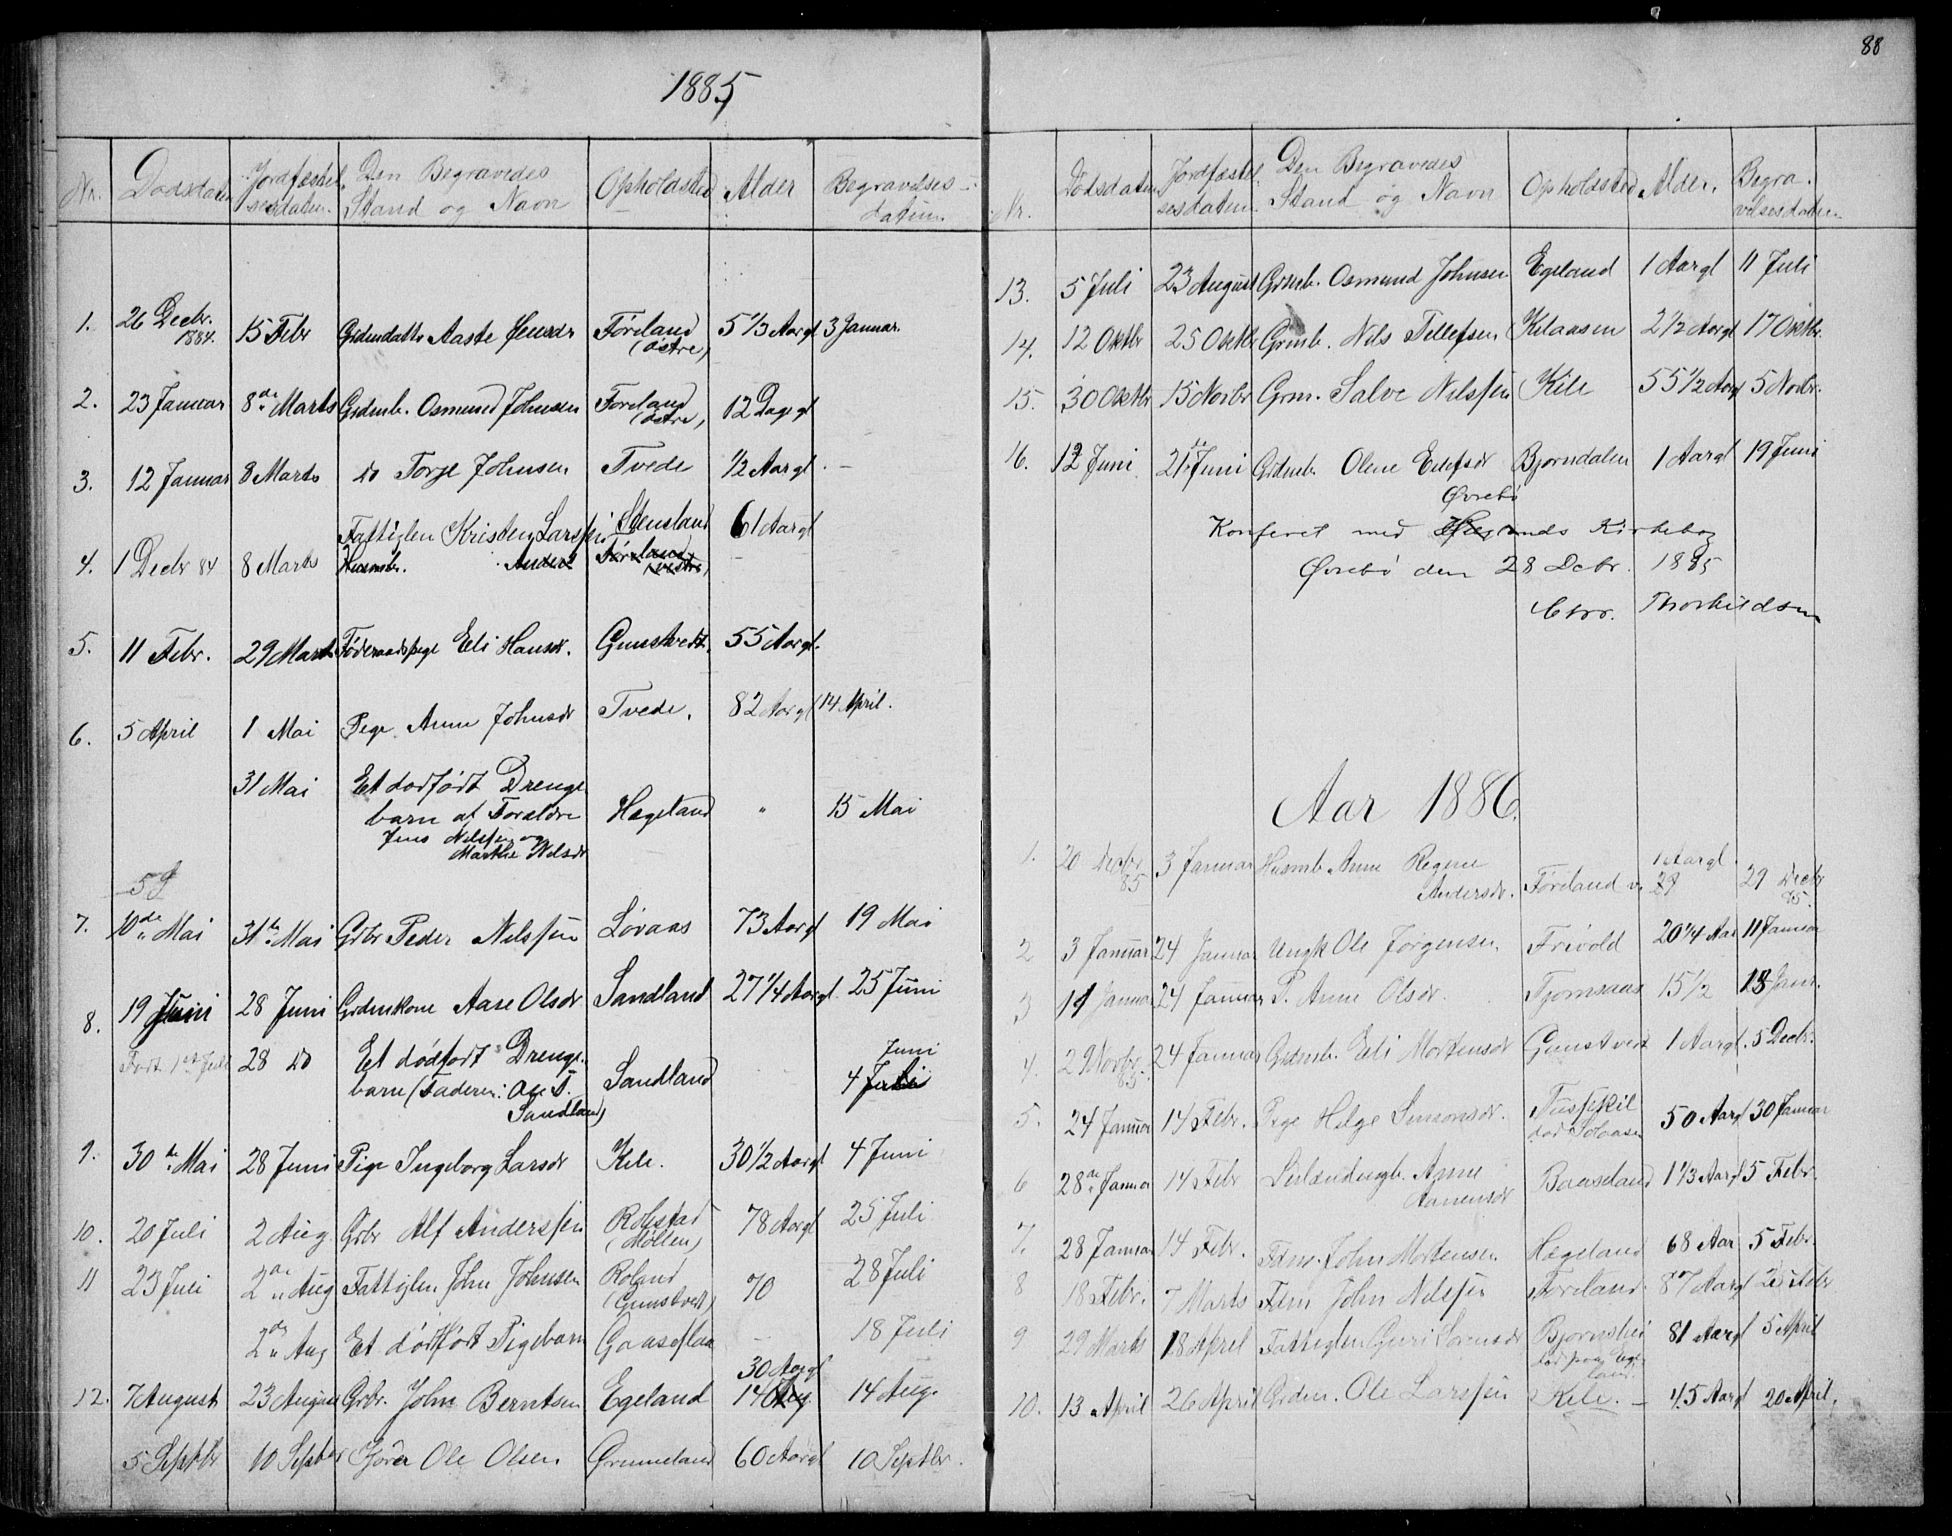 88
1885
Nr. Dødsdatum Jordfæstelsesdatum. Den Begravedes Stand og Navn Opholdsted Alder Begravelsesdatum
1. 26 Decbr. 1884. 15 Febr Aaste Føreland (østre) 5 1/3 Aargl 3 Januar.
2. 23 Januar 8de Marts Grdmb. Osmund Johnsen Føreland (østre) 12 Dage gl
3. 12 Januar 8 Marts do Torje Johnsen Tvede 1/2 Aargl. –
4. 1 Decbr 84 8 Marts Fattiglem Kristen Larssen Stensland 61 Aargl
Husmb. Anders Føreland (vestre)
5. 11 Febr. 29 Marts Føderaadspige Eli Hansdr. Gunstvedt. 55 Aargl.
6. 5 April 1 Mai Pige Anne Johnsdr Tvede. 82 Aargl 14 April.
31 Mai Et dødfødt Drenge
barn af Forældre Hægeland " 15 Mai
Jens Nilssen og
Marthe Nilsdr
7. 10de Mai 31te Mai Grbr Peder Nilssen Løvaas 73 Aargl 19 Mai
8. 19 Juni 28 Juni Grdmkone Aase Olsdr Sandland 27 1/4 Aargl 25 Juni
Født 28 do Et dødfødt Drenge- Juni
barn (Faderen: Ole T. Sandland 4 Juli
Sandland)
9. 30te Mai 28 Juni Pige Ingeborg Larsdr Kile. 30 1/2 Aargl 4 Juni
10. 20 Juli 2 Aug Grbr Alf Anderssen Robstad (Møllen) 78 Aargl 25 Juli
11 23 Juli 2den Aug Fattiglem John Johnsen Roland (Gunstvedt) 70 28 Juli
2den Aug Et dødfødt Pigebarn Gaaseflaa – 18 Juli
30 Aargl
12. 7 August 23 August Grbr. John Berntsen Egeland 14 Aug 14 Aug.
5 Septbr 10 Septber Ole Olsen Grimeland 60 Aargl 10 Septbr.
Nr. Dødsdatum Jordfæstelsesdatum. Den Begravedes Stand og Navn Opholdsted Alder. Begravelsesdatum
13. 5 Juli 23 August Grdmb. Osmund Johnsen Egeland 1 Aargl 11 Juli
14. 12 Oktbr 25 Oktbr Grmb. Nils Tellefsen Kilaasen 2 1/2 Aargl 17 Oktbr.
15. 30 Oktbr 15 Novbr Grm. Salve Nilssen Kile 55 1/2 Aargl 5 Novbr.
16. 12 Juni 21de Juni Grdmb. Olene Bjørndalen 1 Aargl 19 Juni
Øvrebø
Konferet med Hægelands Kirkebog
Øvrebø den 28 Decbr. 1885
Chr. Thorkildsen
Aar 1886.
1. 20 Decbr 85 3 Januar Husmb. Anne Regine 1 Aargl.
Andersdr. Føreland v. 29 29 Decbr 85.
2 3 Januar 24 Januar Ungk Ole Jørgensen Frivold 20 1/4 Aar 11 Januar
3 11 Januar 24 Januar P. Anne Olsdr. Tjomsaas 15 1/2 18 Janr.
4. 29 Novbr. 85. 24 Januar Grdmb. Eli Mortensdr Gunstvedt 1 Aargl. 5 Decbr.
5. 24 Januar 14 Febr. Pige Helge Simonsdr. 50 Aargl 30 Januar
6 28de Januar 14 Febr Anne Baaseland 1 1/3 Aargl 5 Febr.
Aanensdr
7. 28 Januar 14 Febr. Fdm. John Mortensen Hægeland 68 Aar 5 Febr.
8 18 Febr. 7 Marts Fdm John Nilssen Føreland. 87 Aargl 25 Febr
9 29 Marts 18 April Fattiglem Guri Sørensdr Bjørnshei 81 Aargl 5 April
10. 13 April 26 April Grdm. Ole Larssen Kile. – 45 Aargl 20 April.